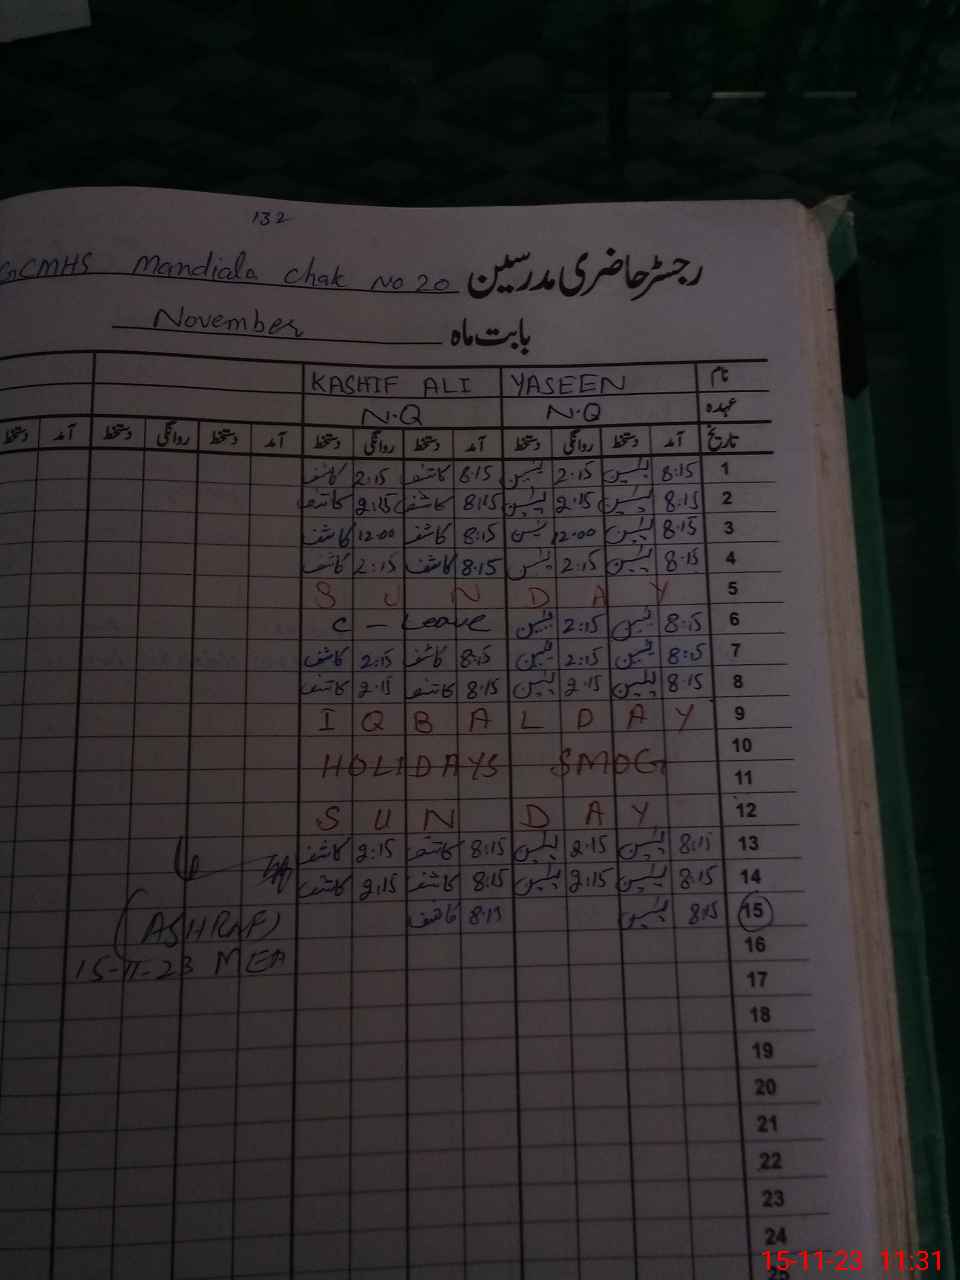 132
GCMHS Mandiala Chak No 20 رجسٹر حاضری مدرسین
November بابت ماہ
نام YASEEN KASHIF ALI
عہدہ N.Q N.Q
تاریخ آمد دستخط روانگی دستخط آمد دستخط روانگی دستخط آمد دستخط روانگی دستخط آمد دستخط
1 8:15 یٰسین 2:15 یٰسین 8:15 کاشف 2:15 کاشف
2 8:15 یٰسین 2:15 یٰسین 8:15 کاشف 2:15 کاشف
3 8:15 یٰسین 12:00 یٰسین 8:15 کاشف 12:00 کاشف
4 8:15 یٰسین 2:15 یٰسین 8:15 کاشف 2:15 کاشف
5 SUNDAY
6 8:15 یٰسین 2:15 یٰسین C - Leave
7 8:15 یٰسین 2:15 یٰسین 8:15 کاشف 2:15 کاشف
8 8:15 یٰسین 2:15 یٰسین 8:15 کاشف 2:15 کاشف
9 IQBAL DAY
10
HOLIDAYS SMOG
11
12 SUNDAY
13 8:15 یٰسین 2:15 یٰسین 8:15 کاشف 2:15 کاشف
14 8:15 یٰسین 2:15 یٰسین 8:15 کاشف 2:15 کاشف
15 8:15 یٰسین 8:15 کاشف
(ASHRAF)
16
15-11-23 MEA
17
18
19
20
21
22
23
24
15-11-23 11:31